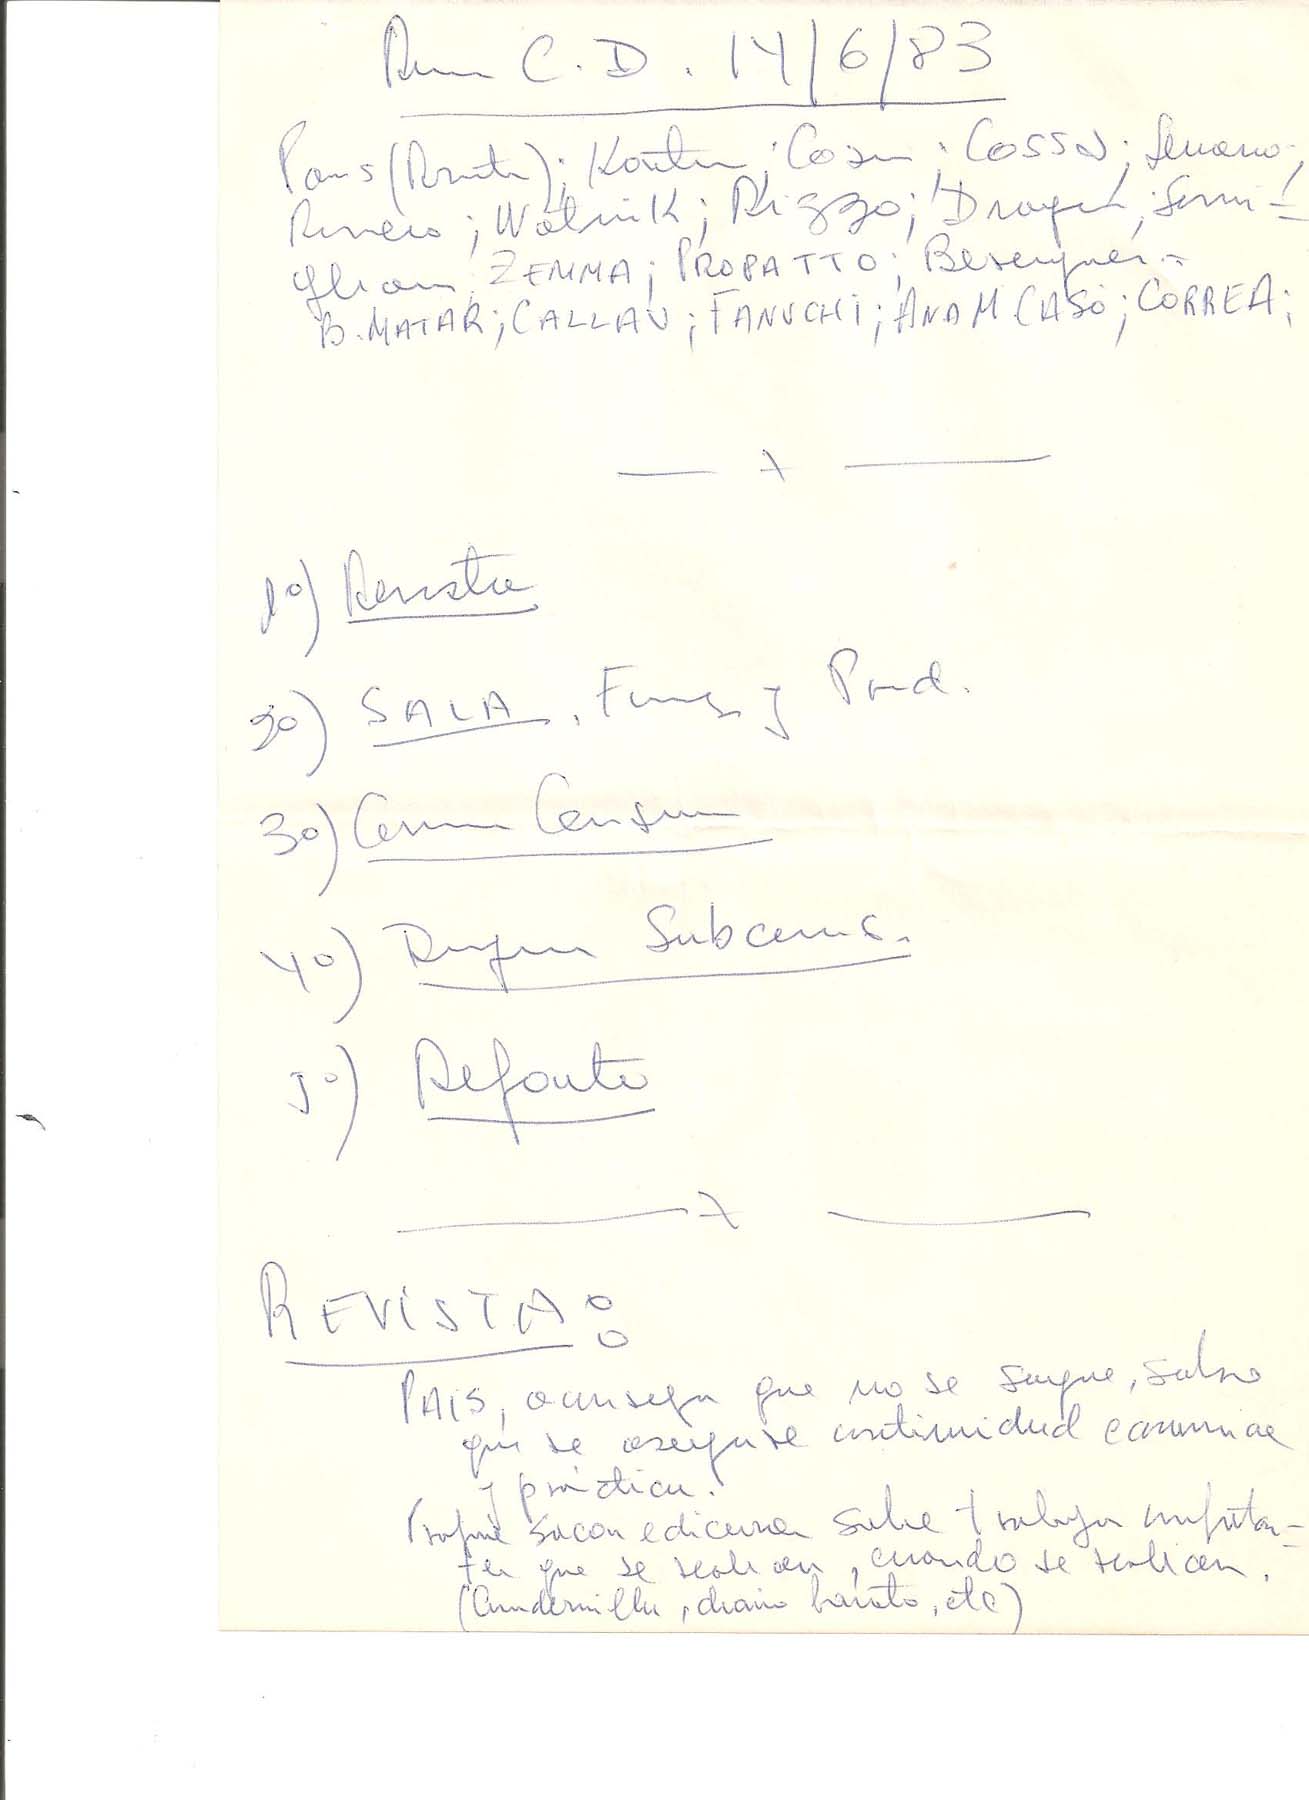 Reun C.D. 14/6/83
Pais (Renta); ; ; Cossa; Serrano;
Rivero; Wolnik; Rizzo; Dragún; Somi-
gliana; ZEMMA; PROPATTO; Berenguer
B. MATAR; CALLAU; FANUCHI; ANA M. CASO; CORREA;
+
1º) Revista
2º) SALA. Func y Prod.
3º) Censura
4º) Subcomis.
5º)
+
REVISTA:
PAIS, aconseja que no se saque, salvo
que se asegure continuidad economica
y práctica.
Propone sacar edicione sobre trabajos importan-
tes que se realicen, cuando se realicen.
(Cuadernillo, diario barato, etc)